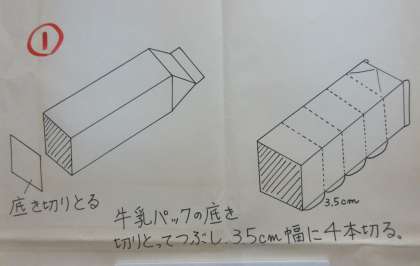 ①
底を切りとる
3.5cm
牛乳パックの底を
切りとってつぶし、3.5cm幅に4本切る。